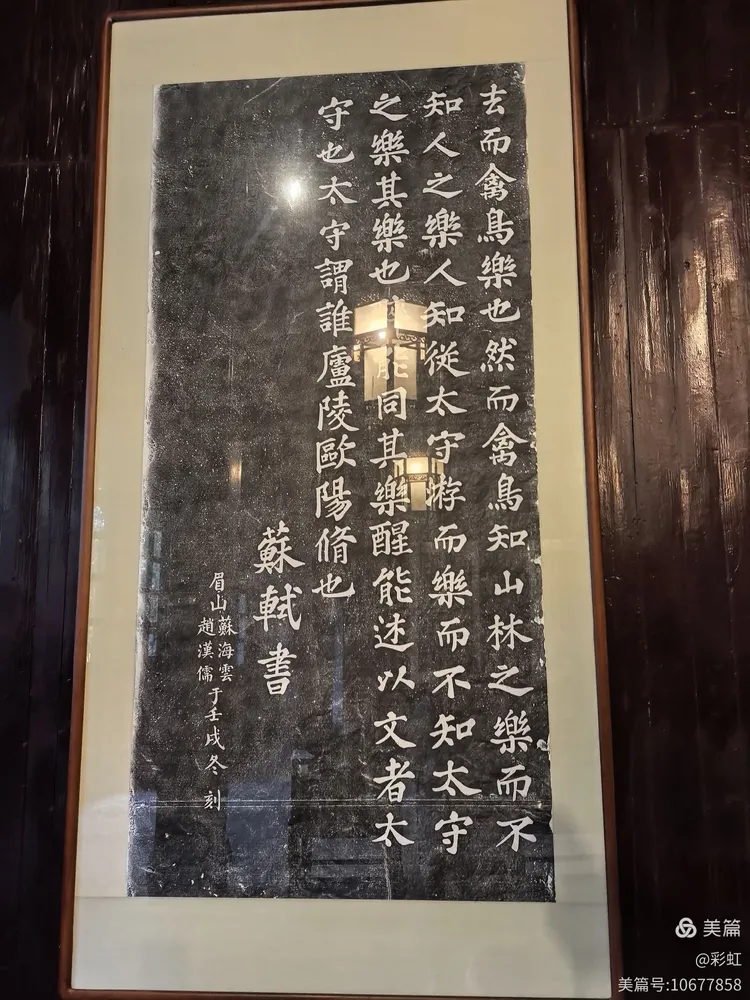 去而禽鳥樂也然而禽鳥知山林之樂而不
知人之樂人知從太守游而樂而不知太守
之樂其樂也能同其樂醒能述以文者太
守也太守謂誰廬陵歐陽脩也
蘇軾書
眉山蘇海雲
趙漢儒
于壬戌冬刻
美篇
@彩虹
美篇号:10677858